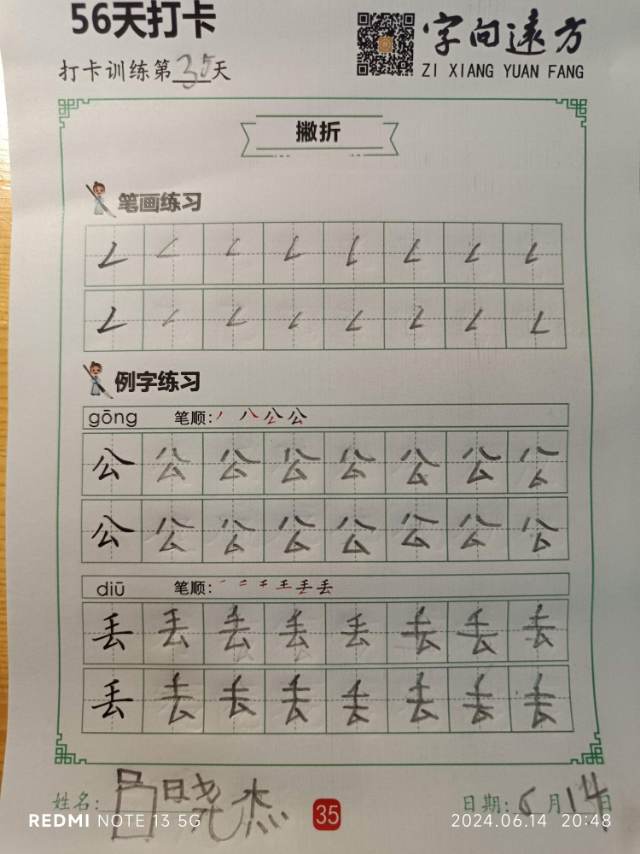 56天打卡
打卡训练第35天
字向遠方
ZI XIANG YUAN FANG
撇折
笔画练习
例字练习
gōng 笔顺:丿 八 公 公
公 公 公 公 公 公 公 公
公 公 公 公 公 公 公 公
diū 笔顺:
丢 丢 丢 丢 丢 丢 丢 丢
丢 丢 丢 丢 丢 丢 丢 丢
姓名:吕晓杰
35
日期:6月14日
REDMI NOTE 13 5G
2024.06.14 20:48